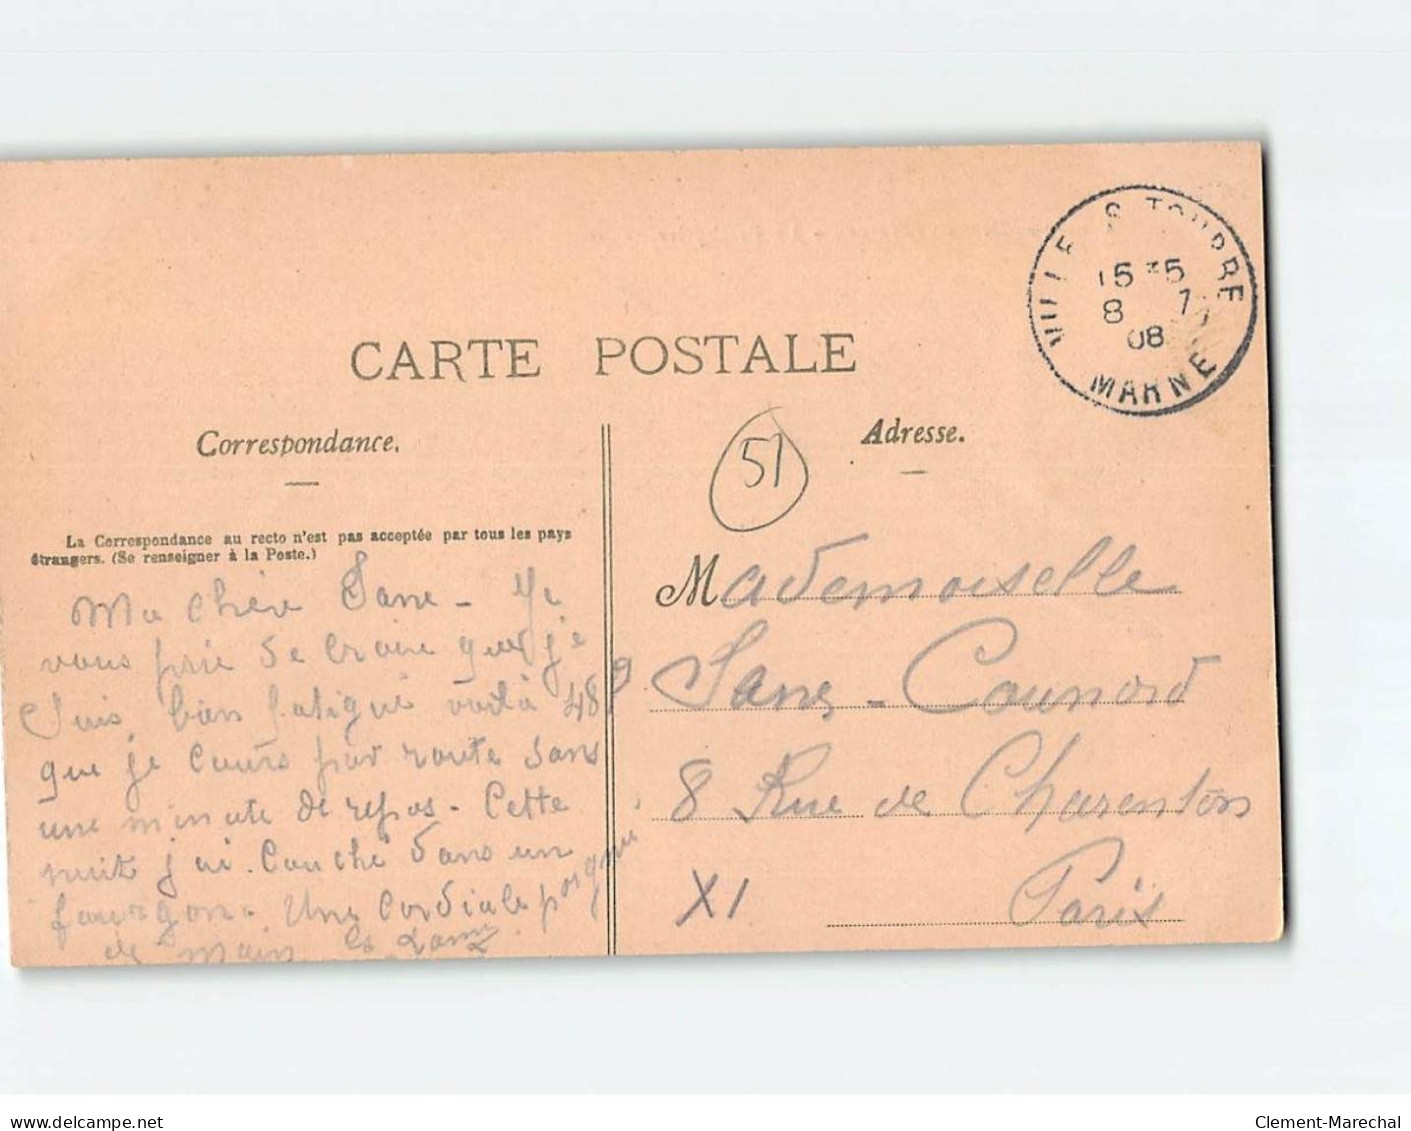 VILLE S TOURBE
15 35
8 7
08
MARNE
CARTE POSTALE
Correspondance.
Adresse.
51
La Correspondance au recto n'est pas acceptée par tous les pays
étrangers. (Se renseigner à la Poste.)
Ma chère Jane - Je
vous prie de croire que je
suis bien fatigué voilà 48
que je cours par route sans
une minute de repos - Cette
nuit j'ai couché dans un
fourgon. Une cordiale poignée
de main
Mademoiselle
Jane
8 Rue de Charenton
XI
Paris
www.delcampe.net
Clement-Marechal